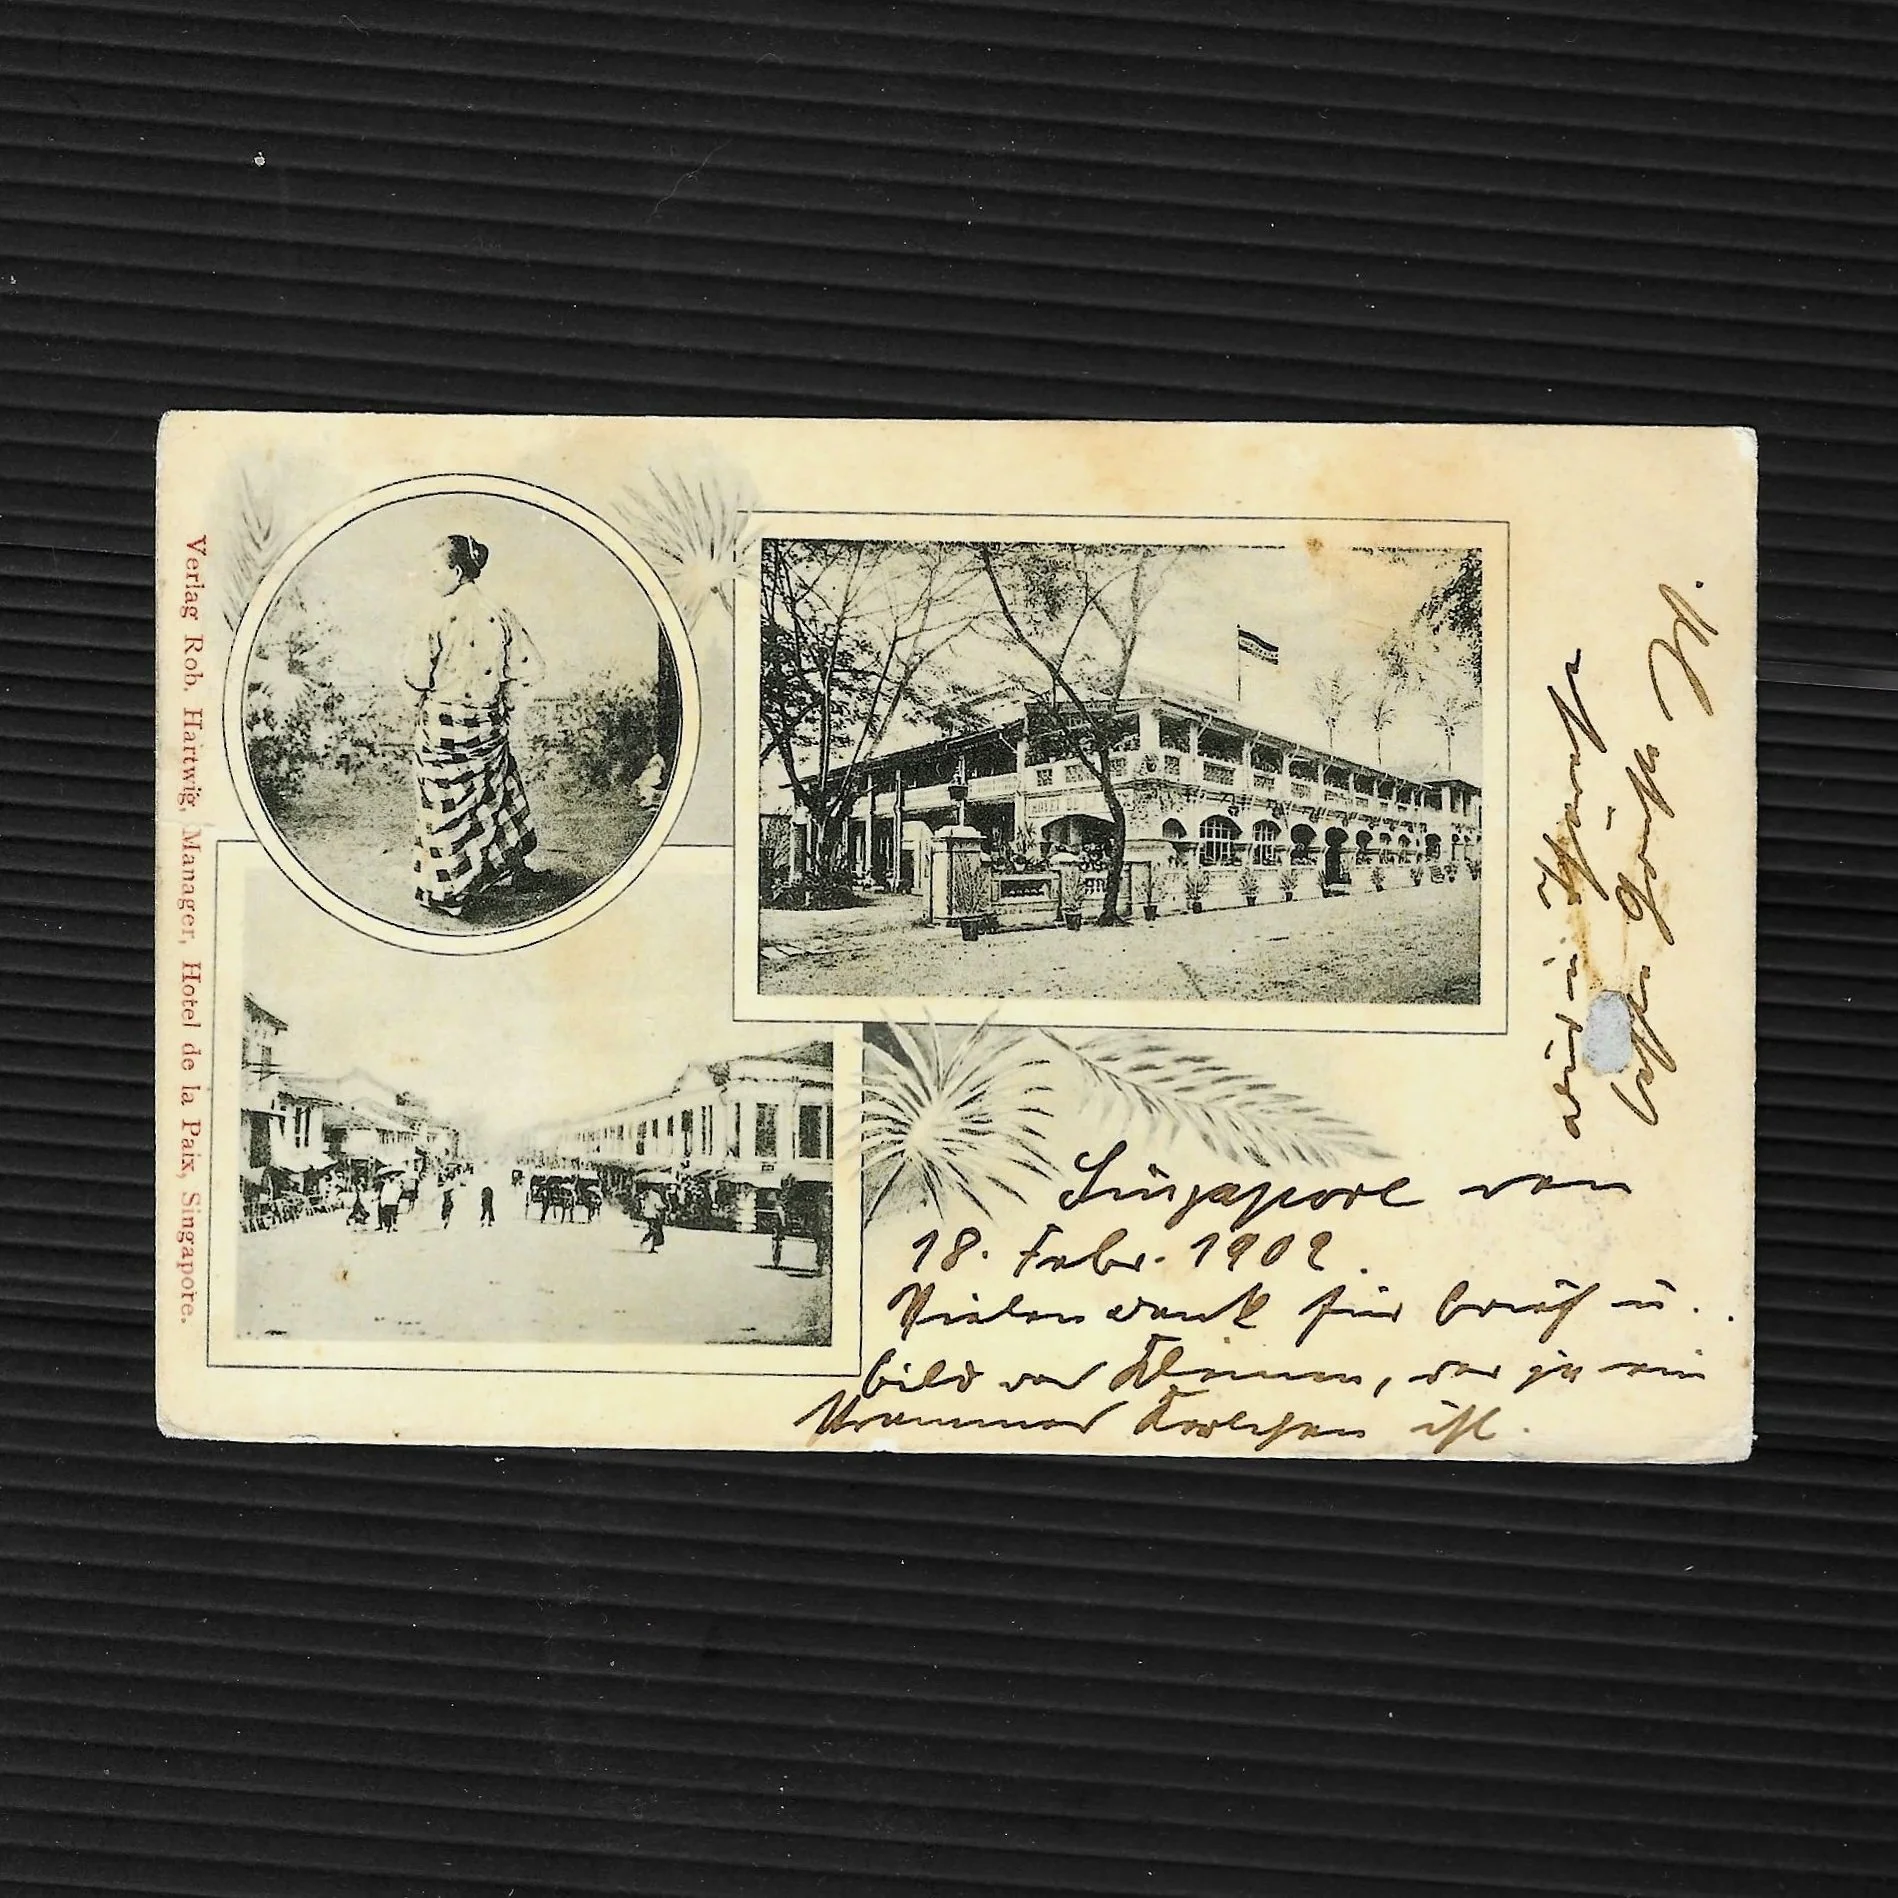 Verlag Rob. Hartwig, Manager, Hotel de la Paix, Singapore.
HOTEL DE LA
Singapore den
18. Febr. 1902.
Vielen Dank für Brief u.
Bild der Kleinen, der ja ein
strammer Kerlchen ist.
Grüße
W.